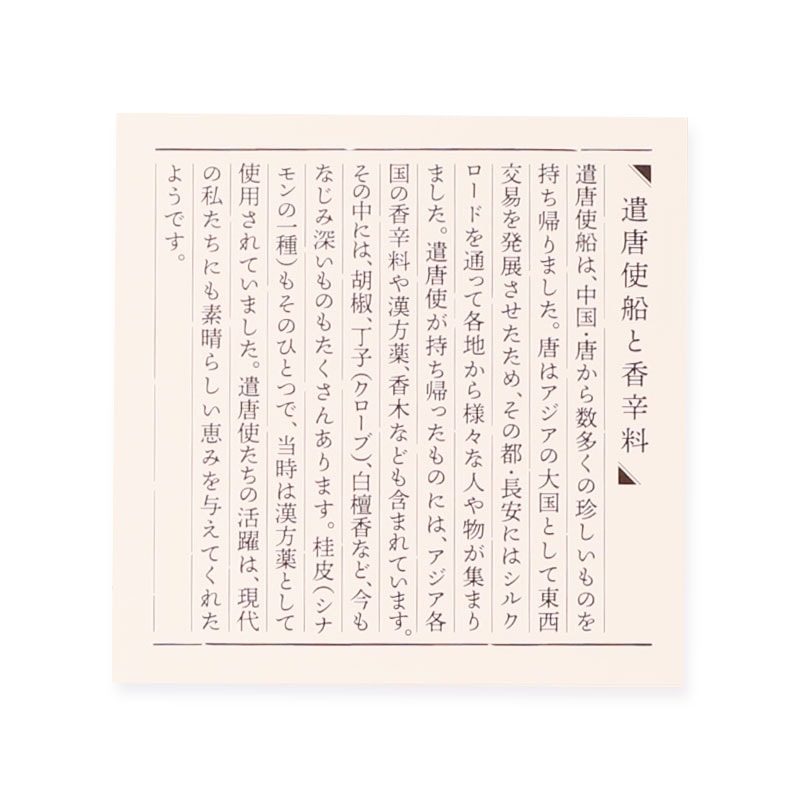 遣唐使船と香辛料
遣唐使船は、中国・唐から数多くの珍しいものを
持ち帰りました。唐はアジアの大国として東西
交易を発展させたため、その都・長安にはシルク
ロードを通って各地から様々な人や物が集まり
ました。遣唐使が持ち帰ったものには、アジア各
国の香辛料や漢方薬、香木なども含まれています。
その中には、胡椒、丁子(クローブ)、白檀香など、今も
なじみ深いものもたくさんあります。桂皮(シナ
モンの一種)もそのひとつで、当時は漢方薬として
使用されていました。遣唐使たちの活躍は、現代
の私たちにも素晴らしい恵みを与えてくれた
ようです。